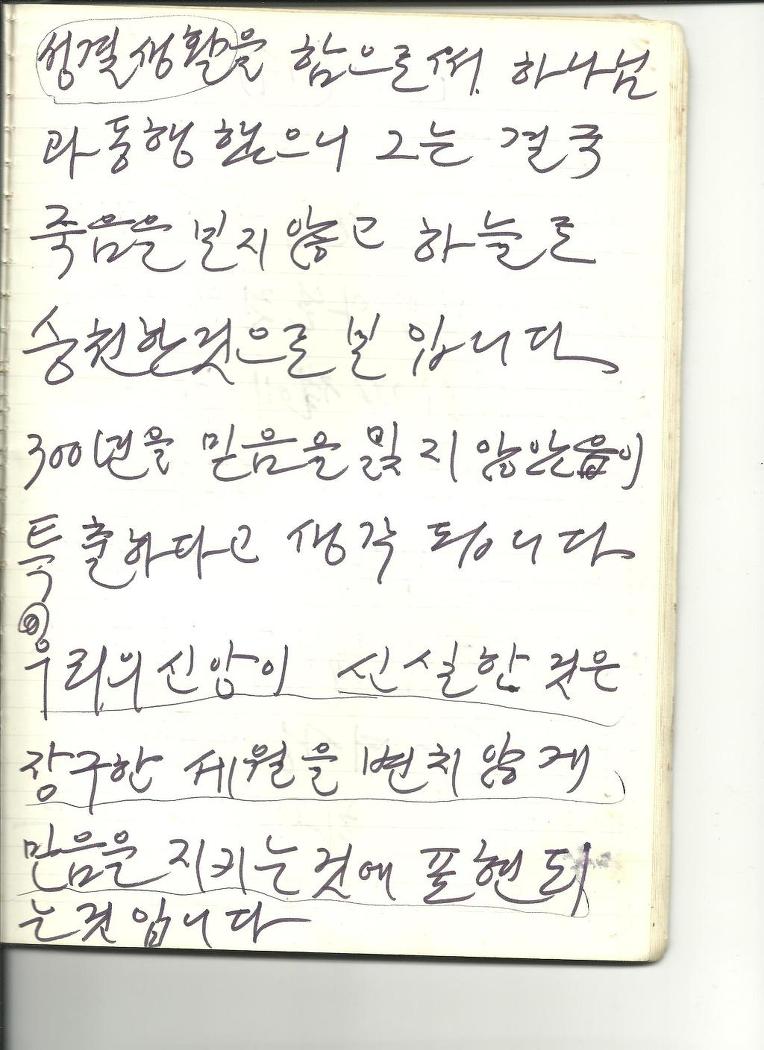 성결생활을 함으로써, 하나님
과 동행했으니 그는 결국
죽음을 보지않고 하늘로
승천한것으로 보입니다
300년을 믿음을 잃지 않았음이
특출하다고 생각 됩니다
우리의 신앙이 신실한 것은
장구한 세월을 변치 않게
믿음을 지키는것에 표현되
는것입니다